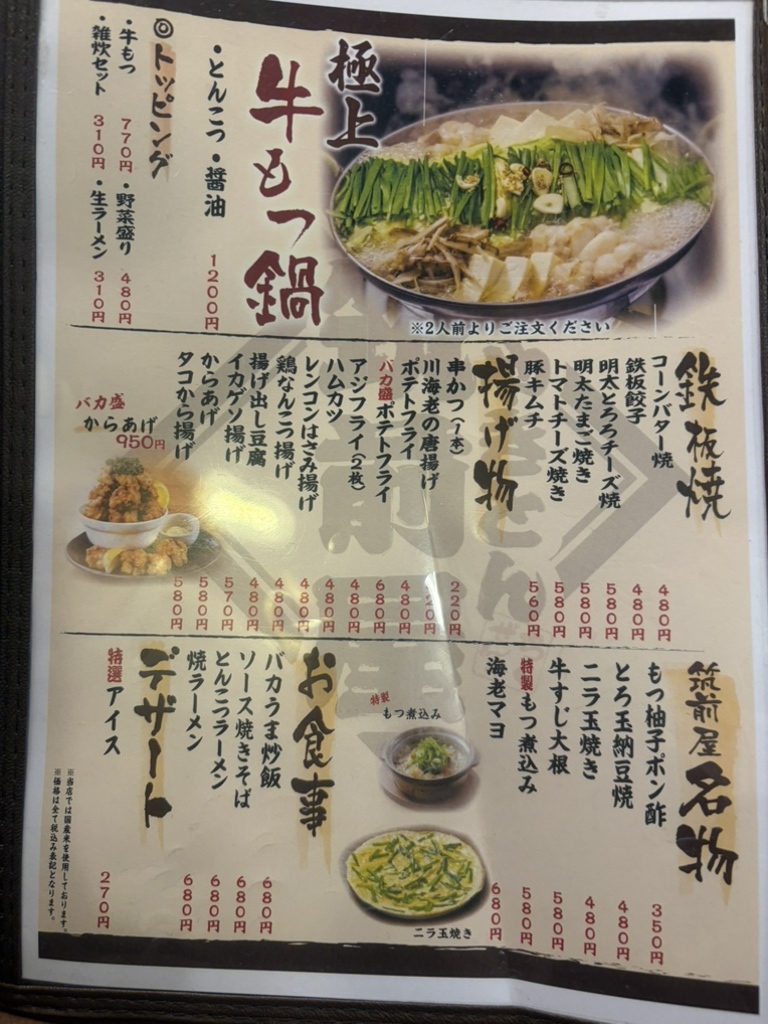 極上
牛もつ鍋
・とんこつ・醤油 1200円
◎トッピング
・牛もつ 770円 ・野菜盛り 480円
・雑炊セット 310円 ・生ラーメン 310円
※2人前よりご注文ください
鉄板焼
コーンバター焼 480円
鉄板餃子 480円
明太とろろチーズ焼 580円
明太たまご焼き 580円
トマトチーズ焼き 580円
豚キムチ 560円
揚げ物
串かつ(1本) 220円
川海老の唐揚げ
ポテトフライ 480円
バカ盛ポテトフライ 680円
アジフライ(2枚) 480円
ハムカツ 480円
レンコンはさみ揚げ 480円
鶏なんこつ揚げ 480円
揚げ出し豆腐 480円
イカゲソ揚げ 570円
からあげ 580円
タコから揚げ 580円
バカ盛
からあげ
950円
筑前屋名物
もつ柚子ポン酢 350円
とろ玉納豆焼 480円
ニラ玉焼き 480円
牛すじ大根 580円
特製もつ煮込み 580円
海老マヨ 680円
特製
もつ煮込み
ニラ玉焼き
お食事
バカうま炒飯 680円
ソース焼きそば 680円
とんこつラーメン 680円
焼ラーメン 680円
デザート
特選アイス 270円
※当店では国産米を使用しております。
※価格は全て税込み表記となります。